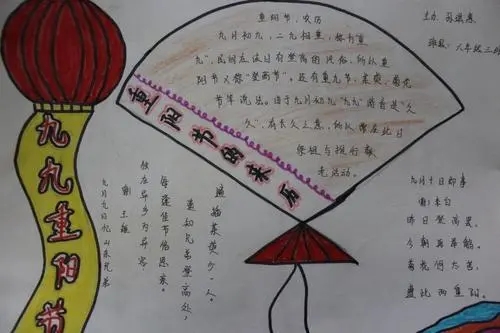 九九重阳节
重阳节的来历
重阳节,农历
九月初九,二九相重,称"重
九",民间在该日有登高的风俗,所以重
阳节又称"登高节"。还有重九节、茱萸、菊花
节等说法。由于九月初九"九九"谐音是"久
久",有长久之意,所以常在此日
祭祖与推行敬
老活动。
主办
班级:六年级三班
九月九日忆山东兄弟
唐 王维
独在异乡为异客
每逢佳节倍思亲。
遥知兄弟登高处,
遍插茱萸少一人。
九月十日即事
(唐)李白
昨日登高罢,
今朝再举觞。
菊花何太苦,
遭此两重阳。